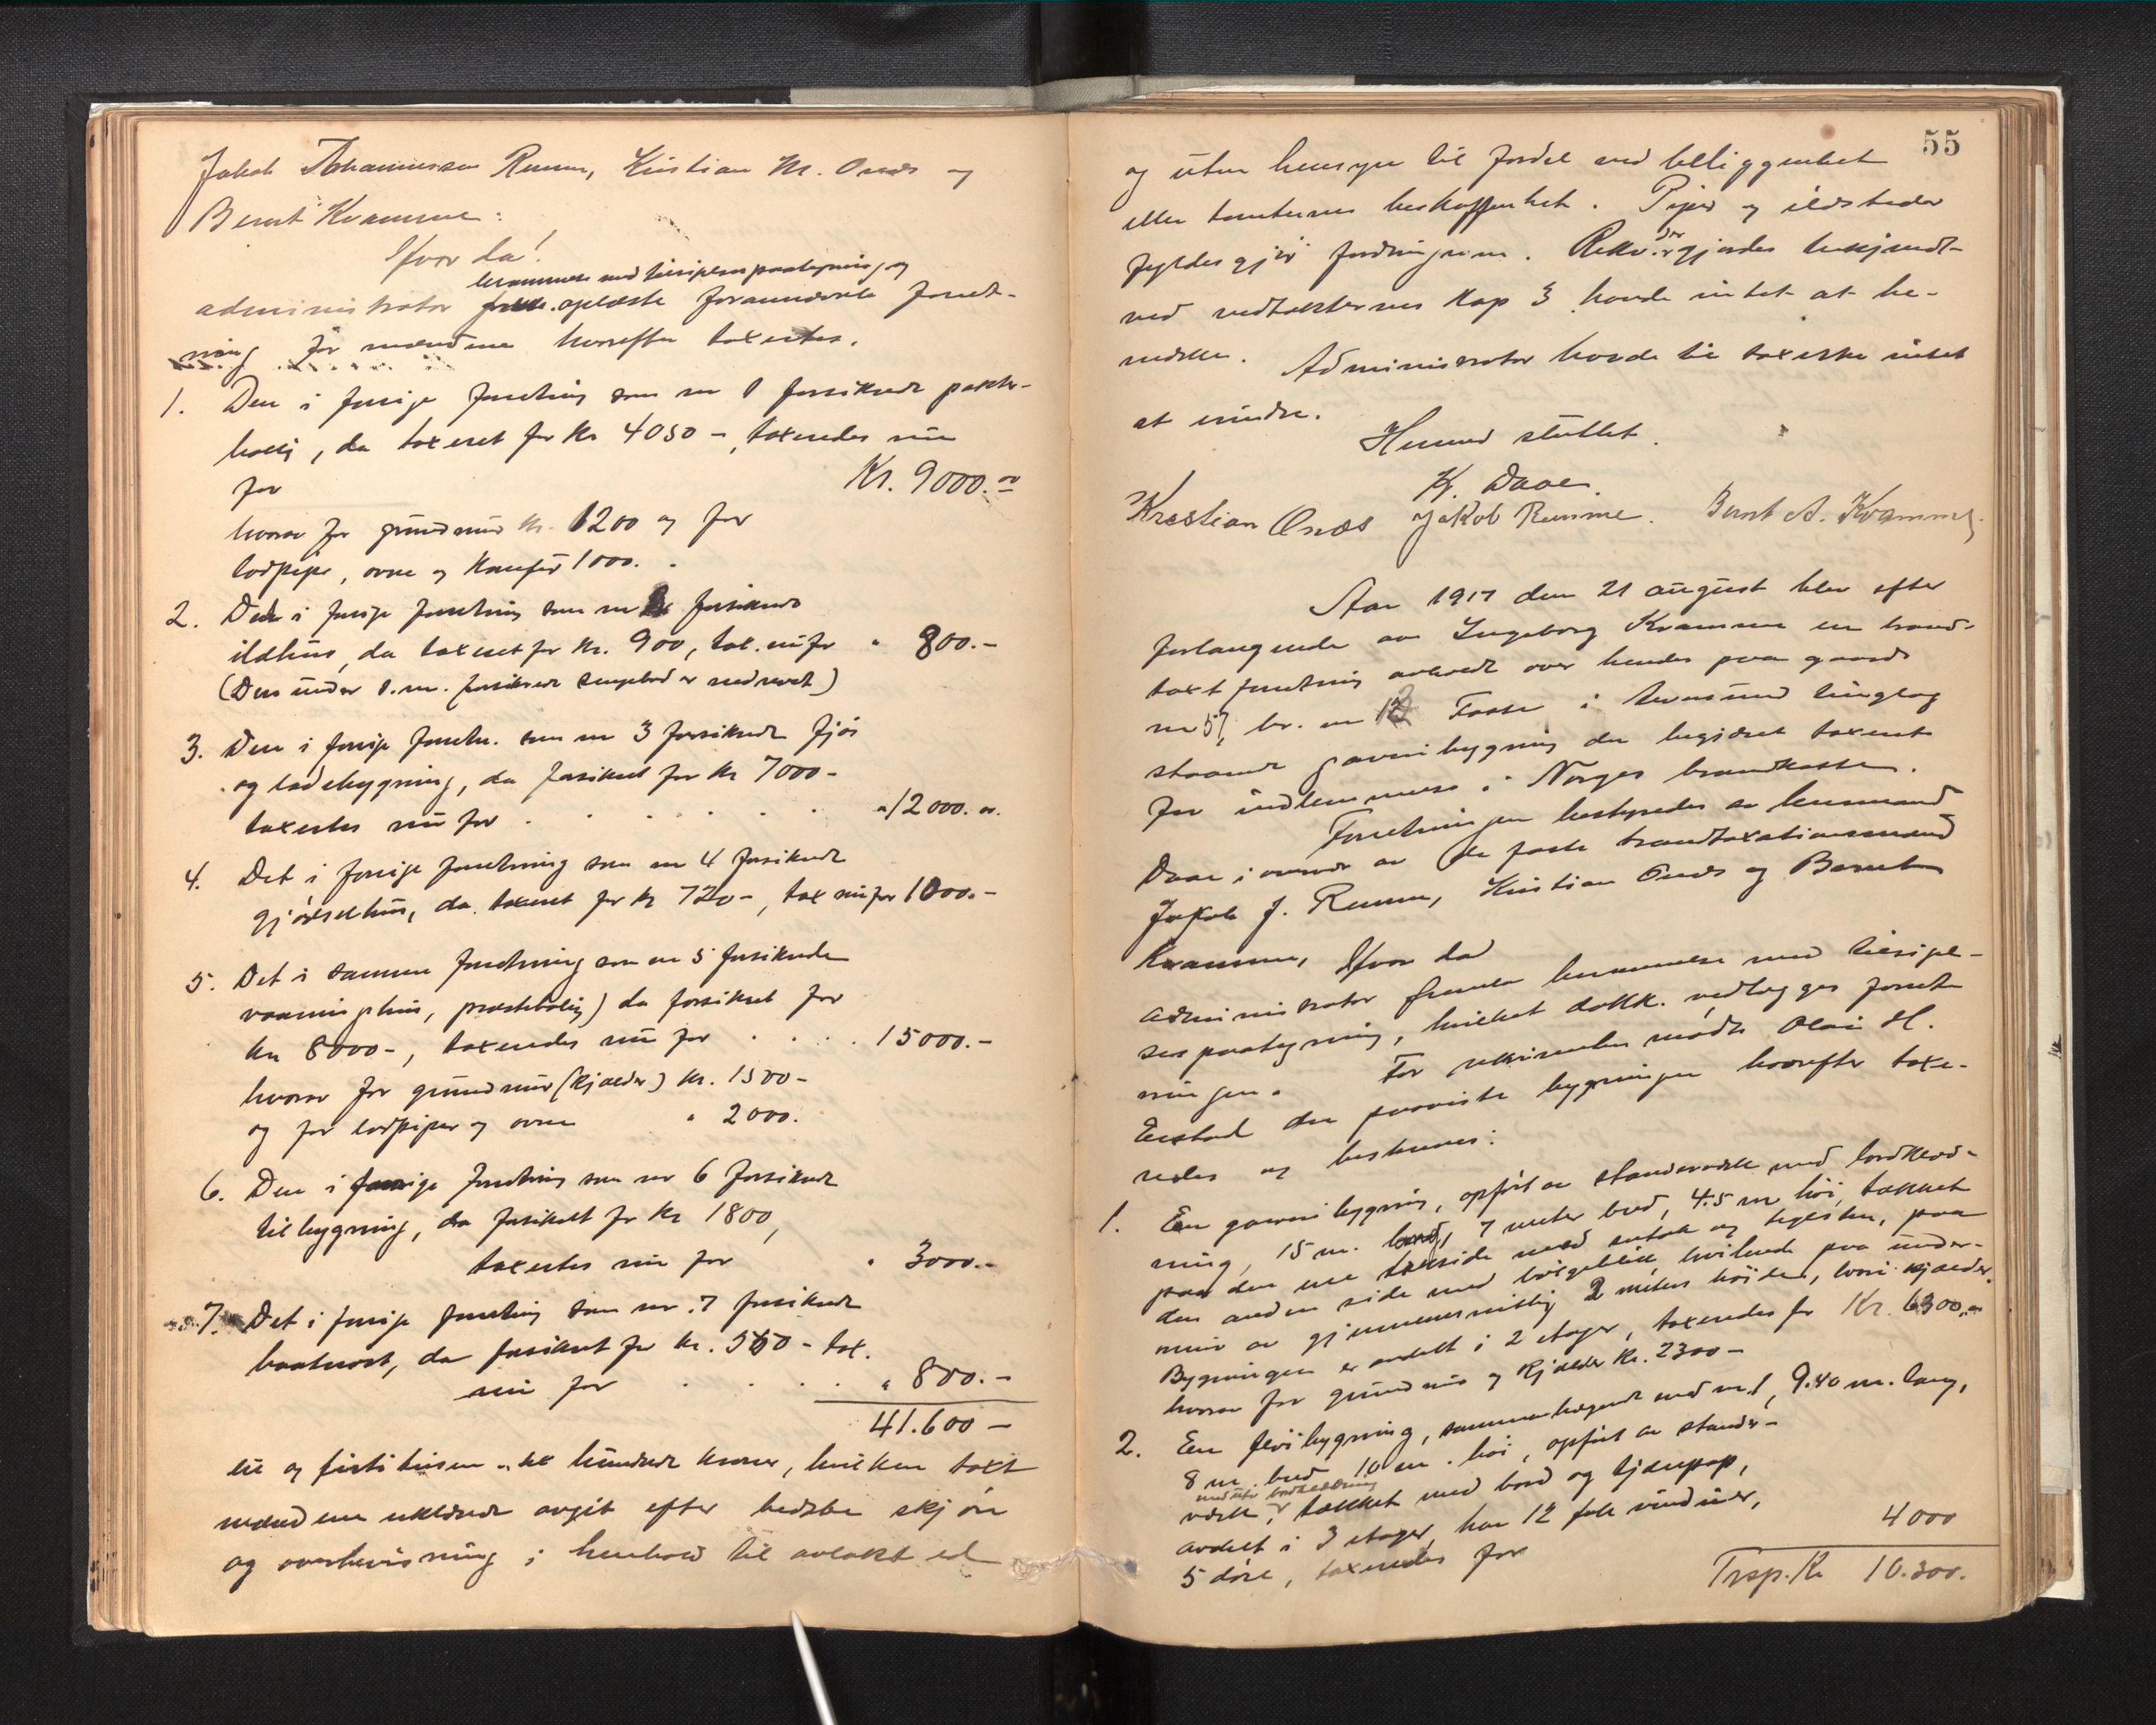 Jakob Johannessen Runne, Kristian Kr. Onæs og
Bernt Kvamme.
Hvor da!
berammelse med tilsigelsespaategning og
administrator oplæste forannævnte forret-
ning for mændene hvorefter taxertes.
1. Den i forrige forretning som nr 1 forsikrede
bolig, da taxeret for kr 4050 –, taxeredes nu
for Kr. 9000.00
hvorav for grundmur kr. 1200 og for
lodpipe, ovne og komfur 1000.
2. Det i forrige forretning som nr forsikrede
ildhus, da taxeret for kr. 900, tax. nu for " 800.–
(Den under s. nr. forsikrede er nedrevet)
3. Den i forrige forretn. som nr 3 forsikrede fjøs
og ladebygning, da forsikret for kr 7000 –
taxertes nu for . . . . . . " 12000. 00.
4. Det i forrige forretning som nr 4 forsikrede
gjødselhus, da taxeret for kr 720 –, tax nu for 1000.–
5. Det i samme forretning som nr 5 forsikrede
vaaningshus, præstebolig) da forsikret for
kr 8000 –, taxeredes nu for . . . . 15000.–
hvorav for grundmur (kjælder) kr. 1500 –
og for lodpiper og ovne " 2000.
6. Den i forrige forretning som nr 6 forsikrede
tilbygning, da forsikret for kr 1800,
taxertes nu for " 3000.–
7. Det i forrige forretning som nr. 7 forsikrede
baatnøst, da forsikret for kr. 550 – tax.
nu for . . . . " 800.–
41.600 –
en og firti tusen sex hundrede kroner, hvilken taxt
mændene erklærede avgit efter bedste skjøn
og overbevisning i henhold til avlakt ed
55
og uten hensyn til fordel ved beliggenhet
eller tomternes beskaffenhet. Piper og ildsteder
fyldesgjør fordringerne. Rekv. der gjordes bekjendt
med vedtækternes Kap 3 havde intet at be-
mærke. Administrator havde til taxten intet
at erindre.
Hermed sluttet.
K. Daae.
Krestian Onæs Jakob Runne. Bernt A. Kvamme.
Aar 1917 den 21 august blev efter
forlangende av Ingeborg Kvamme en brand-
taxtforretning avholdt over hendes paa gaards
nr 57, br. nr 12 i tinglag
staaende garveribygning der begjæret taxert
for indlemmelse i Norges brandkasse.
Forretningen bestyredes av lensmand
Daae i overvær av de faste brandtaxationsmænd
Jakob J. Runne, Kristian Onæs og Bernt
Kvamme, Hvor da
administrator fremla berammelse med tilsigel-
sespaategning, hvilket dokk. vedlægges forret-
ningen. For rekvirenten mødte Olai H.
Eistad der paaviste bygningen hvorefter taxe-
redes og beskreves:
1. En garveribygning, opført av standerverk med bordklæd-
ning, 15 m. lang, 7 meter bred, 4.5 m høi, tækket
paa den ene takside med og teglsten, paa
den anden side med bølgeblik, hvilende paa under-
mur av gjennemsnitlig 2 meters høide, hvori kjælder.
Bygningen er avdelt i 2 etager, taxeredes for Kr. 6300.00
hvorav for grundmur og kjælder kr. 2300 –
2. En bygning, sammenhængende med nr 1, 9.40 m. lang,
8 m. bred, 10 m. høi, opført av stander-
med ytre bordklædning
værk, tækket med bord og tjærepap,
avdelt i 3 etager, har 12 fak vinduer,
5 døre, taxeredes for 4000
Trsp. Kr 10.300.